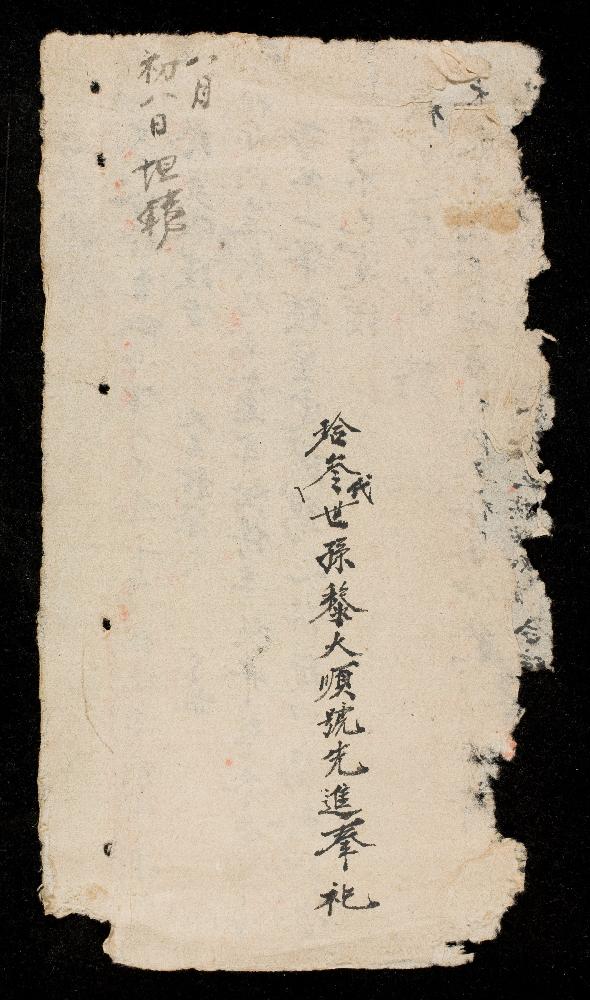 拾叁代世孫黎大順號先進奉祀
八月
初八日坦